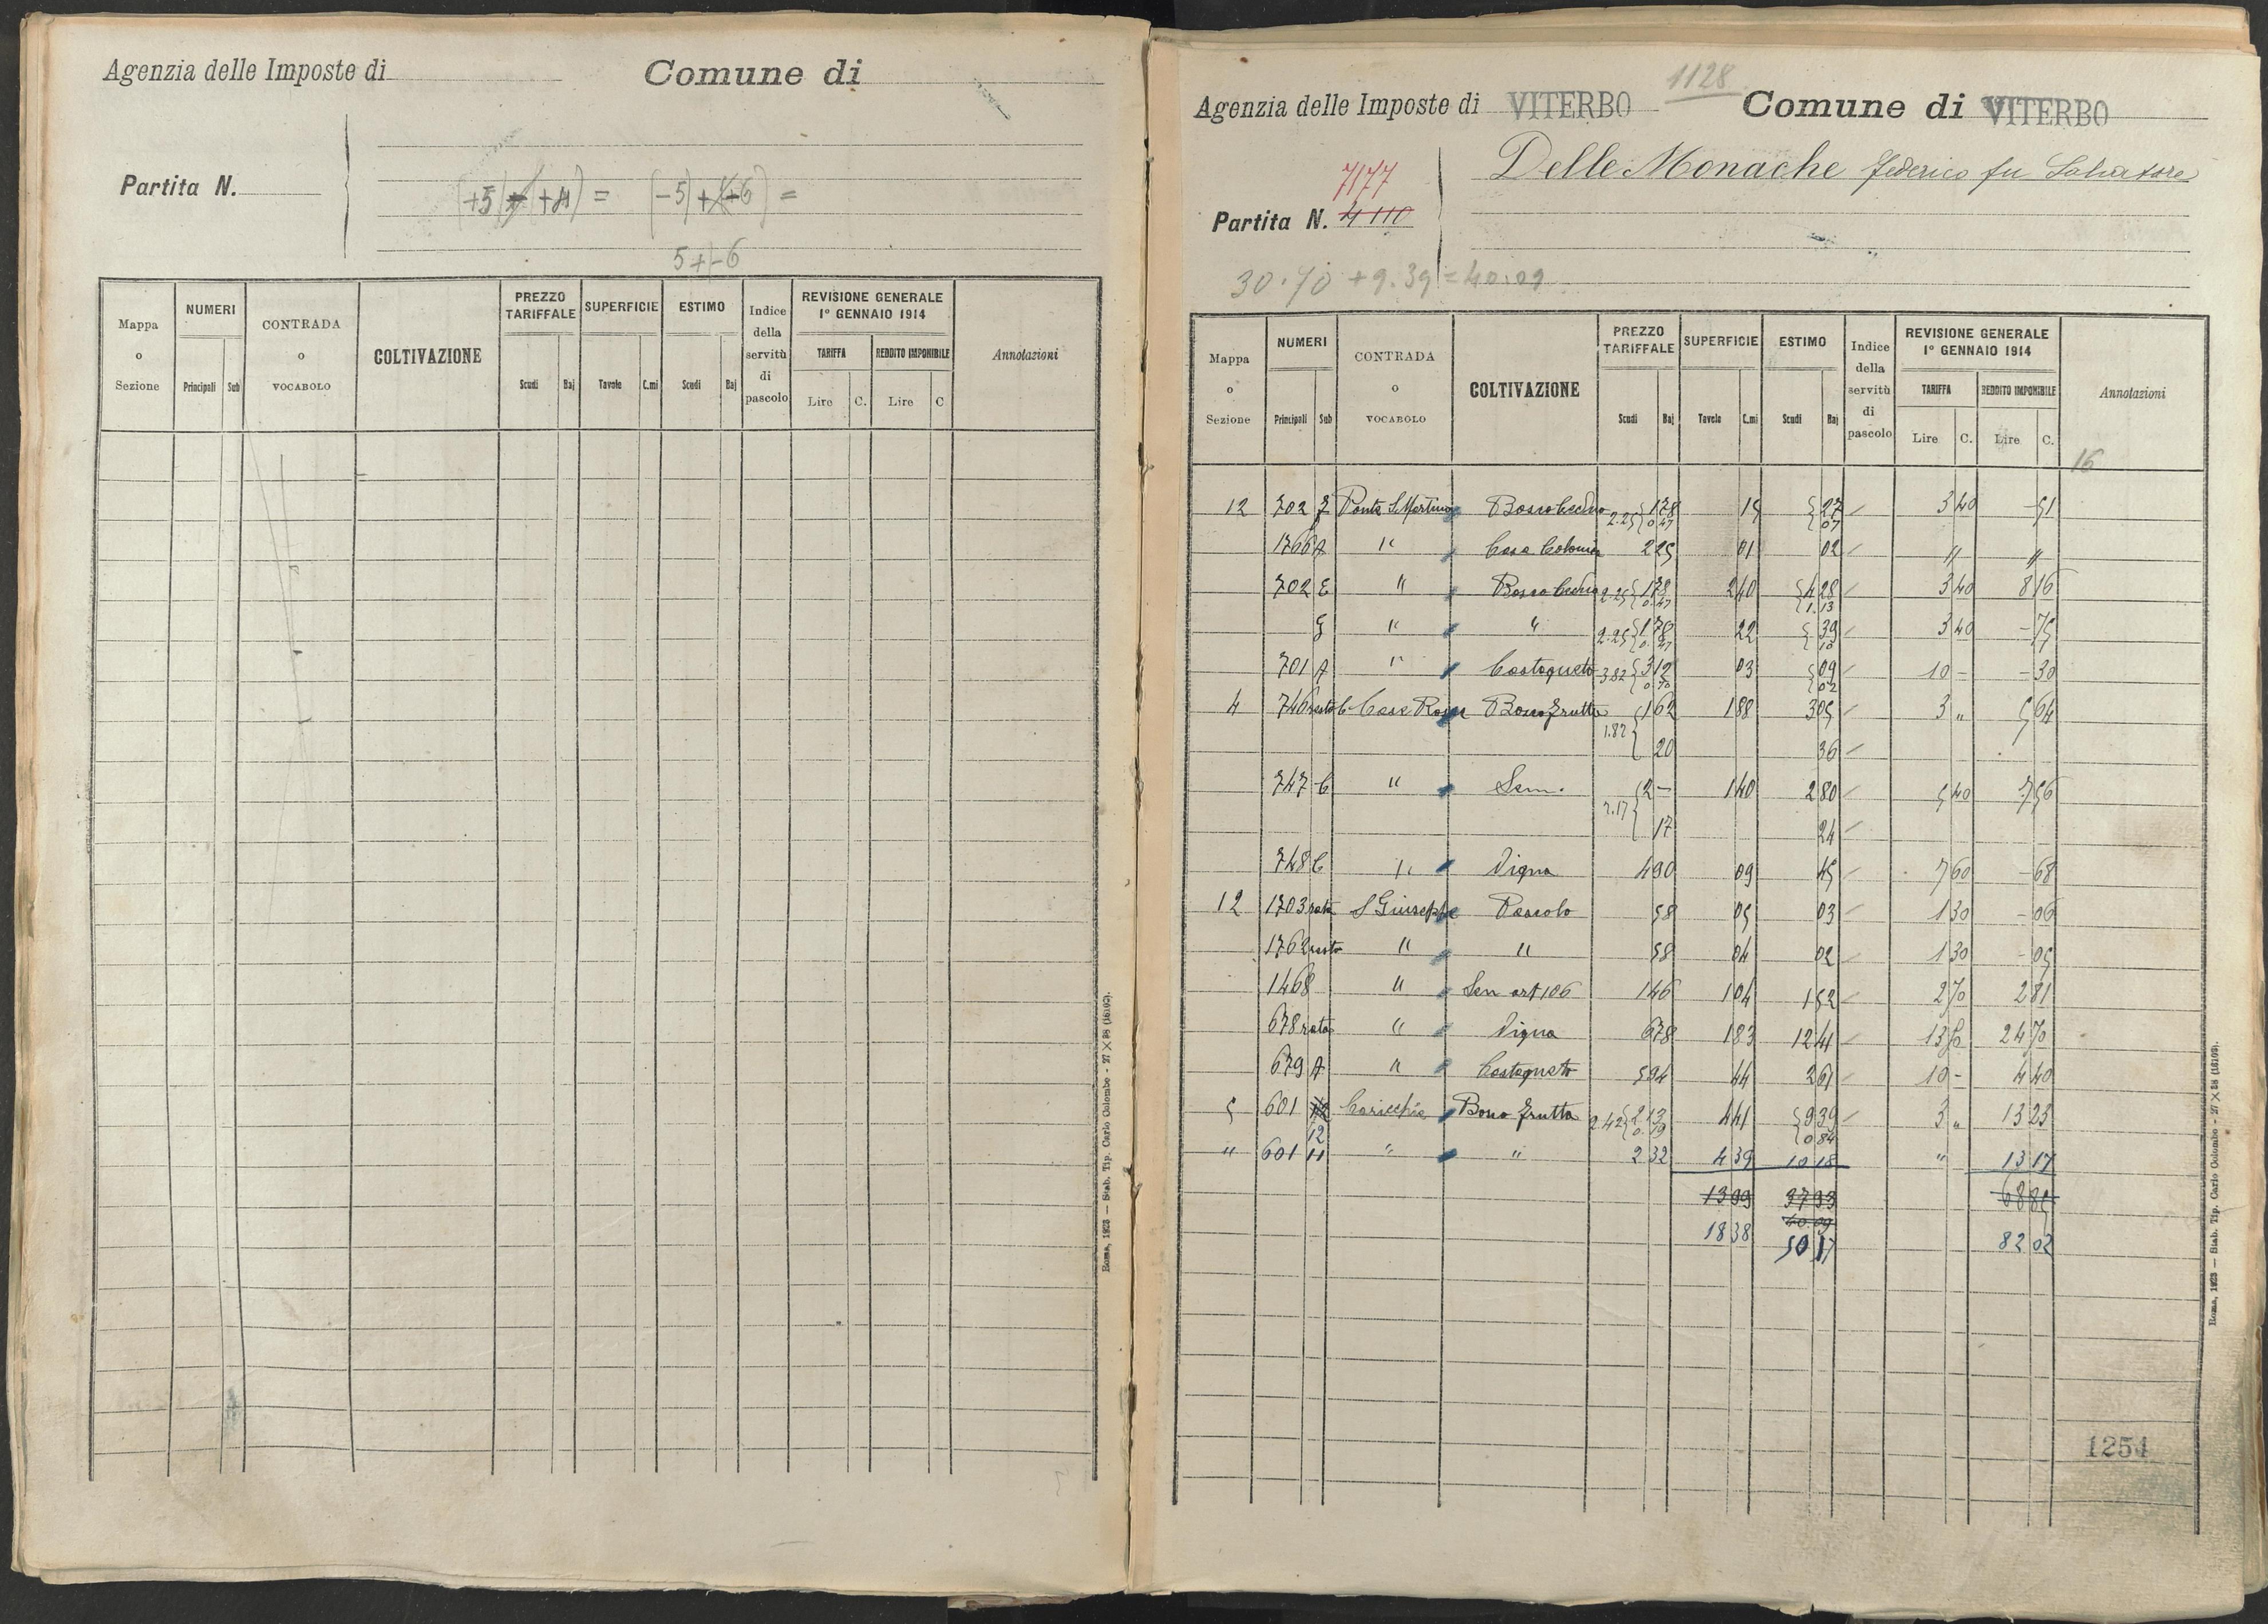 Agenzia delle Imposte di Comune di
Partita N.
(+5)(+4) = (-5)+(+6) =
5+-6
Mappa o Sezione NUMERI Principali Sub CONTRADA o VOCABOLO COLTIVAZIONE PREZZO TARIFFALE Scudi Baj SUPERFICIE Tavole C.mi ESTIMO Scudi Baj Indice della servitù di pascolo REVISIONE GENERALE 1° GENNAIO 1914 TARIFFA Lire C. REDDITO IMPONIBILE Lire C Annotazioni
Roma, 1923 — Stab. Tip. Carlo Colombo - 27 X 38 (16102).
1128
Agenzia delle Imposte di VITERBO Comune di VITERBO
Delle Monache Federico fu Salvatore
7177
Partita N. 4110
30.70 + 9.39 = 40.09
Mappa o Sezione NUMERI Principali Sub CONTRADA o VOCABOLO COLTIVAZIONE PREZZO TARIFFALE Scudi Baj SUPERFICIE Tavole C.mi ESTIMO Scudi Baj Indice della servitù di pascolo REVISIONE GENERALE 1° GENNAIO 1914 TARIFFA Lire C. REDDITO IMPONIBILE Lire C. Annotazioni
16
12 702 F Ponte S Martino Bosco Ceduo 2.25 { 1 78 0 47 15 { 27 07 3 40 - 51
1766 A " Casa Colonica 2 25 01 02 " "
702 E " Bosco Ceduo 2.25 { 1 78 0 47 2 40 { 4 28 1.13 3 40 8 16
G " " 2.25 { 1 78 0 47 22 { 39 10 3 40 - 75
701 A " Castagneto 3.82 { 3 12 0 70 03 { 09 02 10 - - 30
4 746 resto C Casa Rossa Bosco frutta 1.82 { 1 62 1 88 3 05 3 " 5 64
20 36
747 C " Sem. 2.17 { 2 - 1 40 2 80 5 40 7 56
17 24
748 C " Vigna 4 90 09 45 7 60 - 68
12 1703 rata S Giuseppe Pascolo 58 05 03 1 30 - 06
1762 resto " " 58 04 02 1 30 - 05
1468 " Sem art 106 1 46 1 04 1 52 2 70 2 81
678 rata " Vigna 6 78 1 83 12 41 13 50 24 70
679 A " Castagneto 5 94 44 2 61 10 - 4 40
5 601 12 Caricchie Bosco frutta 2.42 { 2 13 0 19 4 41 { 9 39 0 84 3 " 13 23
" 601 11 " " 2 32 4 39 10 18 " 13 17
13 99 37 93 68 85
40.09
18 38 50 17 82 02
1254
Roma, 1923 — Stab. Tip. Carlo Colombo - 27 X 38 (16102).